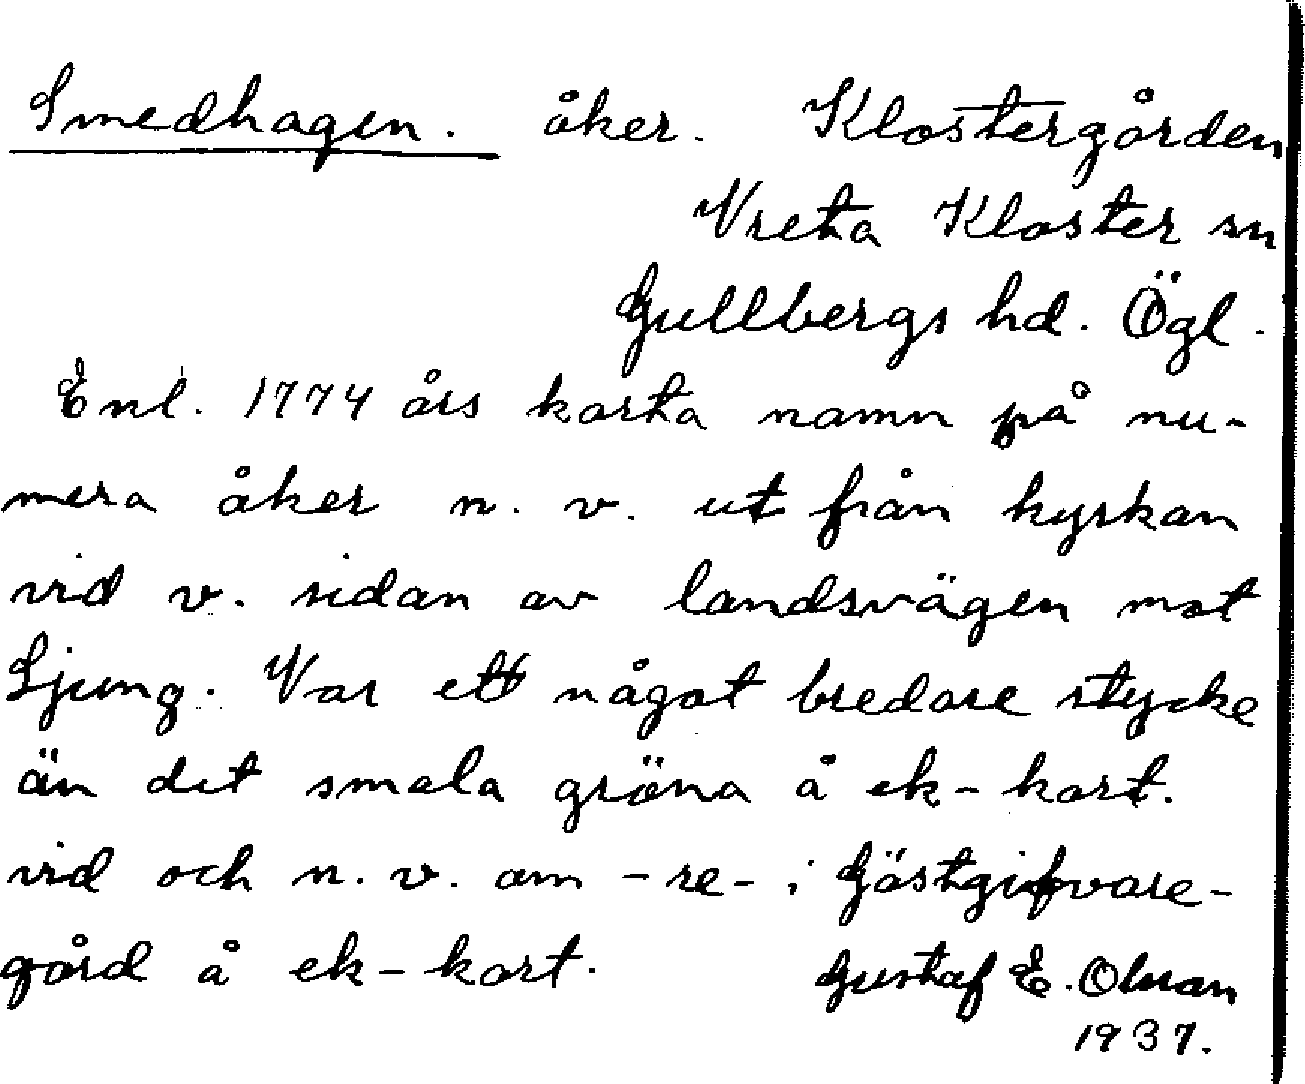 Smedhagen. åker. Klostergården
Vreta Kloster sn
Gullbergs hd. Ögl.
Enl. 1774 års karta namn på nu-
mera åker n. v. ut från kyrkan
vid v. sidan av landsvägen mot
Ljung. Var ett något bredare stycke
än det smala gröna å ek-kart.
vid och n. v. om -re- i Gästgifvare-
gård å ek-kart. Gustaf E. Olsson
1937.